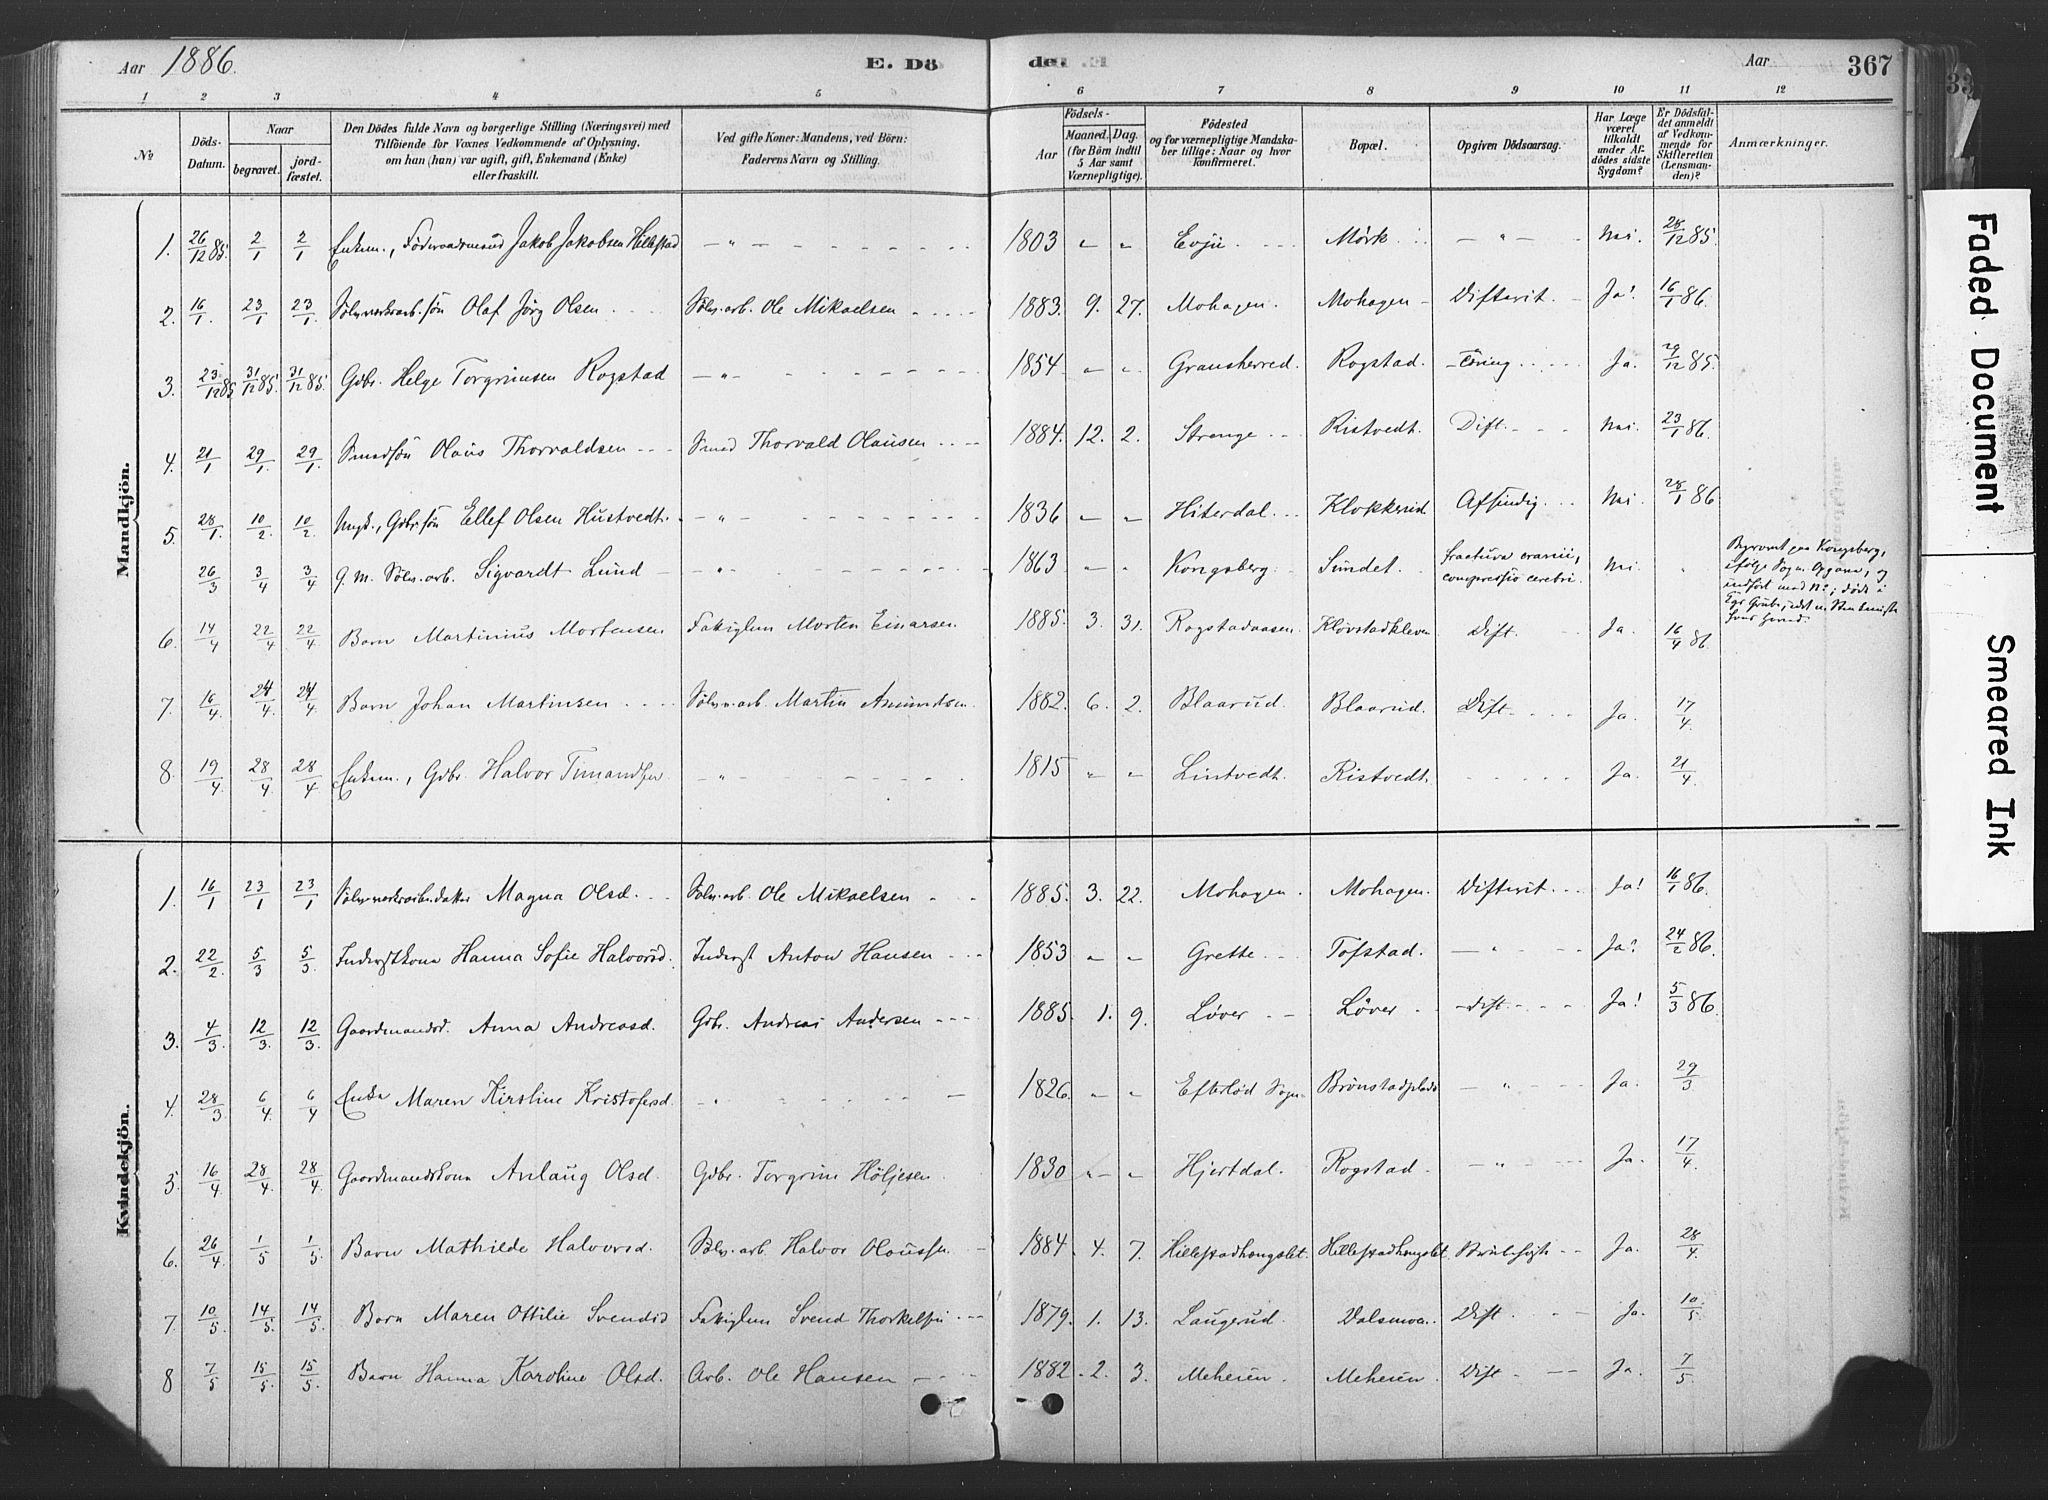 Aar 1886.
E. Dö
den
Aar
367
33
1 2 3 4 5 6 7 8 9 10 11 12
No
Döds-Datum.
Naar
begravet.
jord-fæstet.
Den Dödes fulde Navn og borgerlige Stilling (Næringsvei) med
Tilföiende for Voxnes Vedkommende af Oplysning,
om han (hun) var ugift, gift, Enkemand (Enke)
eller fraskilt.
Ved gifte Koner: Mandens, ved Börn:
Faderens Navn og Stilling.
Födsels-
Aar
Maaned. Dag.
(for Börn indtil
5 Aar samt
Værnepligtige).
Födested
og for værnepligtige Mandska-
ber tillige: Naar og hvor
konfirmeret.
Bopæl.
Opgiven Dödsaarsag.
Har Læge
været
tilkaldt
under Af-
dödes sidste
Sygdom?
Er Dödsfal-
det anmeldt
af Vedkom-
mende for
Skifteretten
(Lensman-
den)?
Anmærkninger.
Mandkjön.
1. 26/12 85. 2/1 2/1 Enkem., Föderaadsmand Jakob Jakobsen Hillestad – „ – 1803 „ „ Evju Mörk – „ – Nei. 28/12 85
2. 16/1 23/1 23/1 Sölvverksarb. sön Olaf Jörg Olsen Sölv. arb. Ole Mikaelsen 1883. 9. 27. Mohagen. Mohagen Difterit. Ja! 16/1 86.
3. 23/12 85 31/12 85. 31/12 85. Gdbr. Helge Torgrimsen Rogstad – „ – 1854 „ „ Gransherred. Rogstad. Tæring Ja. 29/12 85.
4. 21/1 29/1. 29/1. Smedsön Olaus Thorvaldsen Smed Thorvald Olausen 1884. 12. 2. Strenge Ristvedt. Dift. Nei. 23/1 86.
5. 28/1. 10/2 10/2. Ungk., Gdbr. sön Ellef Olsen Hustvedt. – „ – 1836 „ „ Hiterdal. Klokkerud Afsindig. Nei 28/1 86
26/3 3/4 3/4 G. M. Sölv. arb. Sigvardt Lund – „ – 1863 „ „ Kongsberg Sundet. fractura cranii, compressio cerebri. Nei „ Begravet paa Kongsberg,
6. 14/4 22/4 22/4 Barn Martinius Mortensen Morten Einarsen 1885. 3. 31. Rogstadaasen. Klovstadkleven Dift. Ja. 16/4 86.
7. 16/4. 24/4. 24/4. Barn Johan Martinsen Sölv. arb. Martin Amundsen. 1882. 6. 2. Blaarud. Blaarud. Dift. Ja. 17/4.
8. 19/4. 28/4 28/4 Enkem., Gdbr. Halvor Timandsen – „ – 1815 „ „ Lintvedt. Ristvedt. Ja. 21/4
Kvindekjön.
1. 16/1 23/1 23/1 Sölvverksarb. datter Magna Olsd. Sölv. arb. Ole Mikaelsen 1885. 3. 22. Mohagen. Mohagen. Difterit Ja! 16/1 86.
2. 22/2. 5/3 5/3. Inderstkone Hanna Sofie Halvorsd. Inderst Anton Hansen 1853 „ „ Grette Tofstad. – „ – Ja? 24/2 86.
3. 4/3 12/3. 12/3. Gaardmandsd. Anna Andreasd. Gdbr. Andreas Andersen 1885. 1. 9. Löver Löver Dift Ja! 5/3 86
4. 28/3. 6/4. 6/4 Enke Maren Kirstine Kristofersd. – „ – 1826. „ „ Efterlöd Sogn Brönstadplads – „ – Ja. 29/3
5. 16/4 28/4. 28/4. Gaardmandskone Anlaug Olsd. Gdbr. Torgrim Höljesen 1830 „ „ Hjertdal. Rogstad. – „ – Ja. 17/4.
6. 26/4. 1/5 1/5. Barn Mathilde Halvorsd. Sölv. arb. Halvor Olaussen 1884. 4. 7. Hillestadhangslet. Hillestadhangslet Ja. 28/4.
7. 10/5. 14/5. 14/5. Barn Maren Ottilie Svendsd Svend Thorkelsen 1879. 1. 13. Laugerud. Dalsmoen. Dift. Ja. 10/5.
8 7/5 15/5. 15/5. Barn Hanna Karoline Olsd. Arb. Ole Hansen 1882. 2. 3. Meheien. Meheien. Dift Ja. 7/5.
Faded Document
Smeared Ink